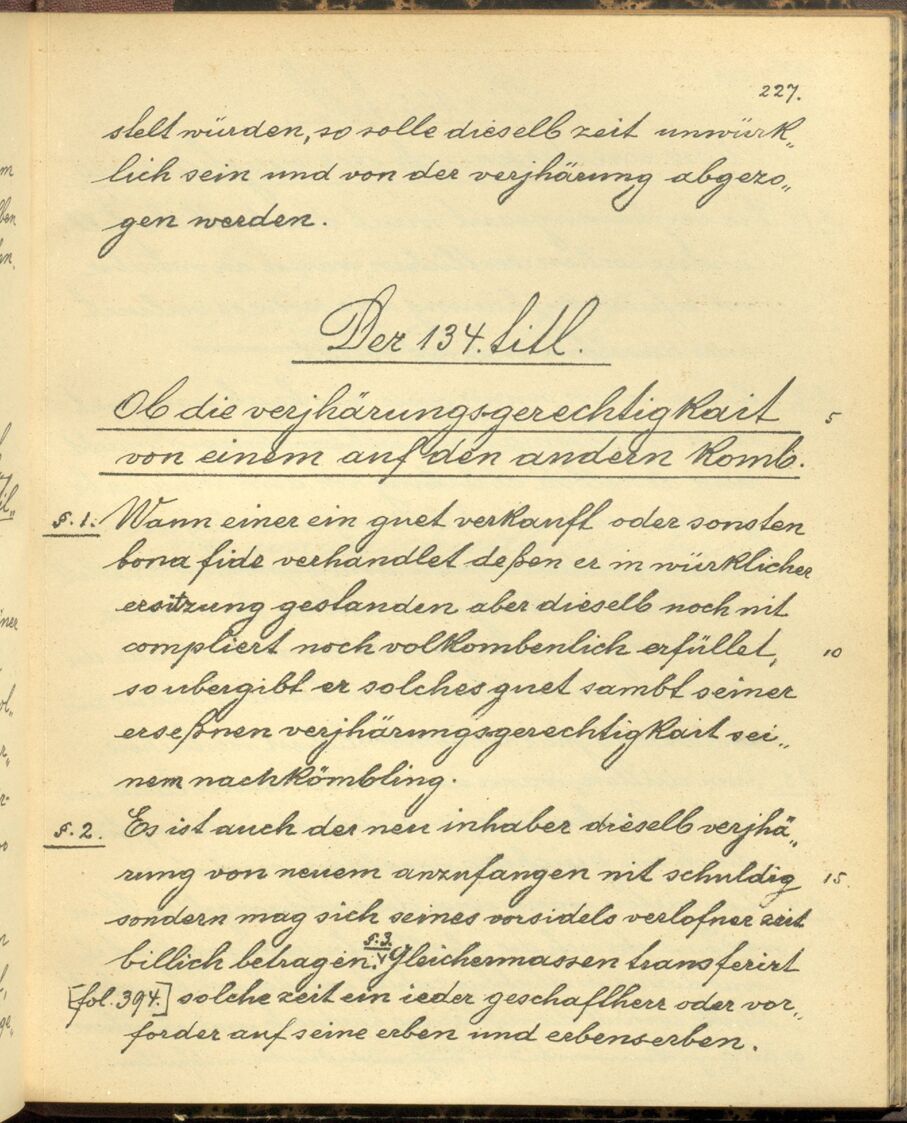 227.
stelt würden, so solle dieselb zeit unwürk„
lich sein und von der verjhärung abgezo„
gen werden.
Der 134. titl.
Ob die verjhärungsgerechtigkait 5
von einem auf den andern komb.
§. 1. Wann einer ein guet verkauft oder sonsten
bona fide verhandlet deßen er in würklicher
ersitzung gestanden aber dieselb noch nit
compliert noch volkombenlich erfüllet, 10
so übergibt er solches guet sambt seiner
erseßnen verjhärungsgerechtigkait sei„
nem nachkömbling.
§. 2. Es ist auch der neu inhaber dieselb verjhä„
rung von neuem anzufangen nit schuldig 15.
sondern mag sich seines vorsidels verlofner zeit
billich betragen. §. 3. Gleichermassen transferirt
[fol. 394.] solche zeit ein ieder geschaftherr oder vor„
forder auf seine erben und erbenserben.